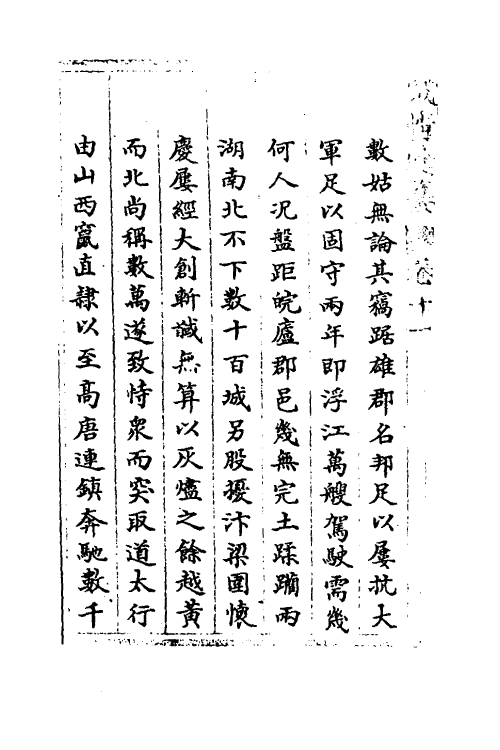 數姑無論其竊踞雄郡名邦足以屢抗大
軍足以固守兩年即浮江萬艘駕駛需幾
何人况盤距皖廬郡邑幾無完土蹂躪兩
湖南北不下數十百城另股擾汴梁圍懷
慶屢經大創斬馘無算以灰燼之餘越黃
而北尚稱數萬遂致恃衆而突取道太行
由山西竄直隸以至高唐連鎮奔馳數千
卷十一